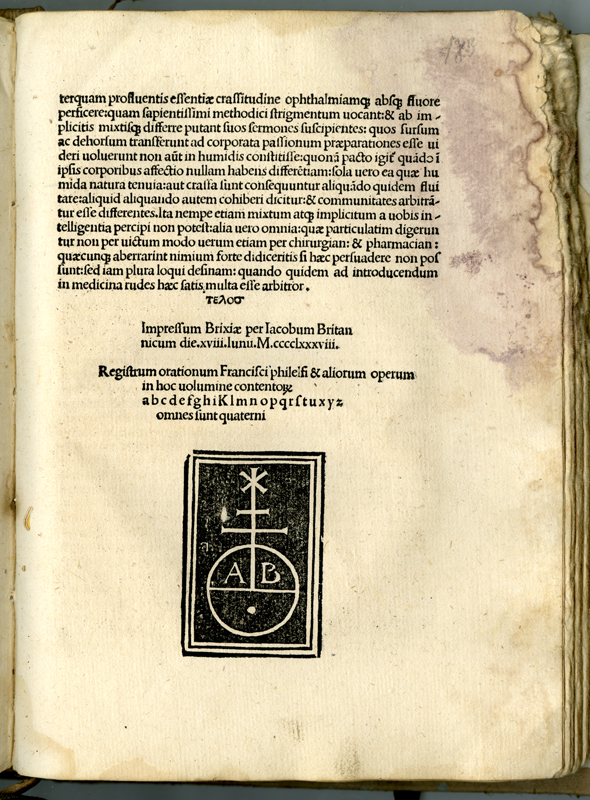 terquam profluentis essentiæ crassitudine ophthalmiamqꝫ absqꝫ fluore
perficere:quam sapientissimi methodici strigmentum uocant:& ab im-
plicitis mixtisqꝫ differre putant suos sermones suscipientes: quos sursum
ac dehorsum transferunt ad corporata passionum præparationes esse ui
deri uoluerunt non aūt in humidis constitisse:quonā pacto igit᷑ quādo ī
ipsis corporibus affectio nullam habens differētiam:sola uero ea quæ hu
mida natura tenuia:aut crassa sunt consequuntur aliquādo quidem flui
tate:aliquid aliquando autem cohiberi dicitur:& communitates arbitrā-
tur esse differentes.Ita nempe etiam mixtum atqꝫ implicitum a uobis in-
telligentia percipi non potest:alia uero omnia:quæ particulatim digerun
tur non per uictum modo uerum etiam per chirurgian: & pharmacian:
quæcunqꝫ aberrarint nimium forte didiceritis si hæc persuadere non pos
sunt:sed iam plura loqui desinam: quando quidem ad introducendum
in medicina rudes hæc satis multa esse arbitror.
τελοσ
Impressum Brixiæ per Iacobum Britan
nicum die.xviii.Iunu.M.cccclxxxviii.
Registrum orationum Francisci philelfi & aliorum operum
in hoc uolumine contentoꝝ
a b c d e f g h i K l m n o p q r s t u x y z
omnes sunt quaterni
A B